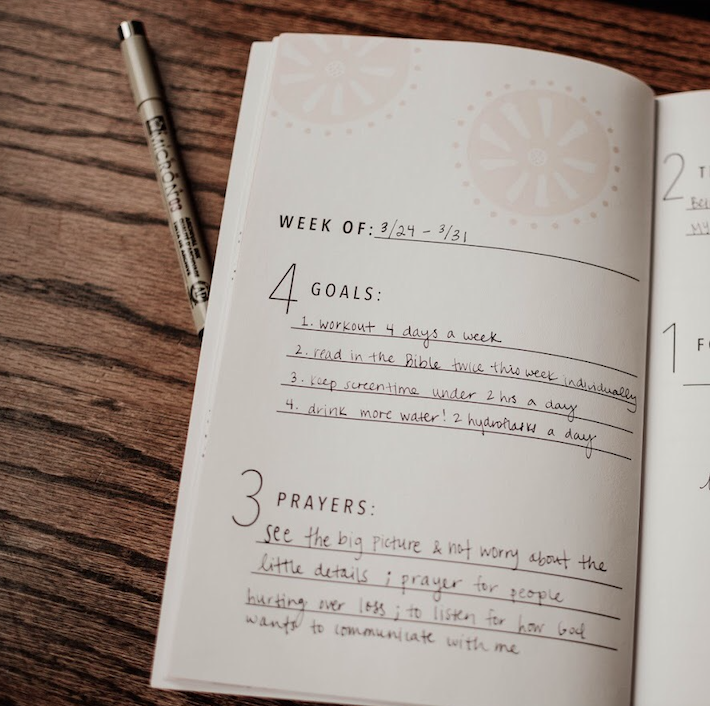 MICRON
WEEK OF: 3/24 - 3/31
4 GOALS:
1. workout 4 days a week
2. read in the Bible twice this week individually
3. keep screentime under 2 hrs a day
4. drink more water! 2 hydroflasks a day
3 PRAYERS:
see the big picture & not worry about the
little details ; prayer for people
hurting over loss ; to listen for how God
wants to communicate with me
2 T
MY
1 F